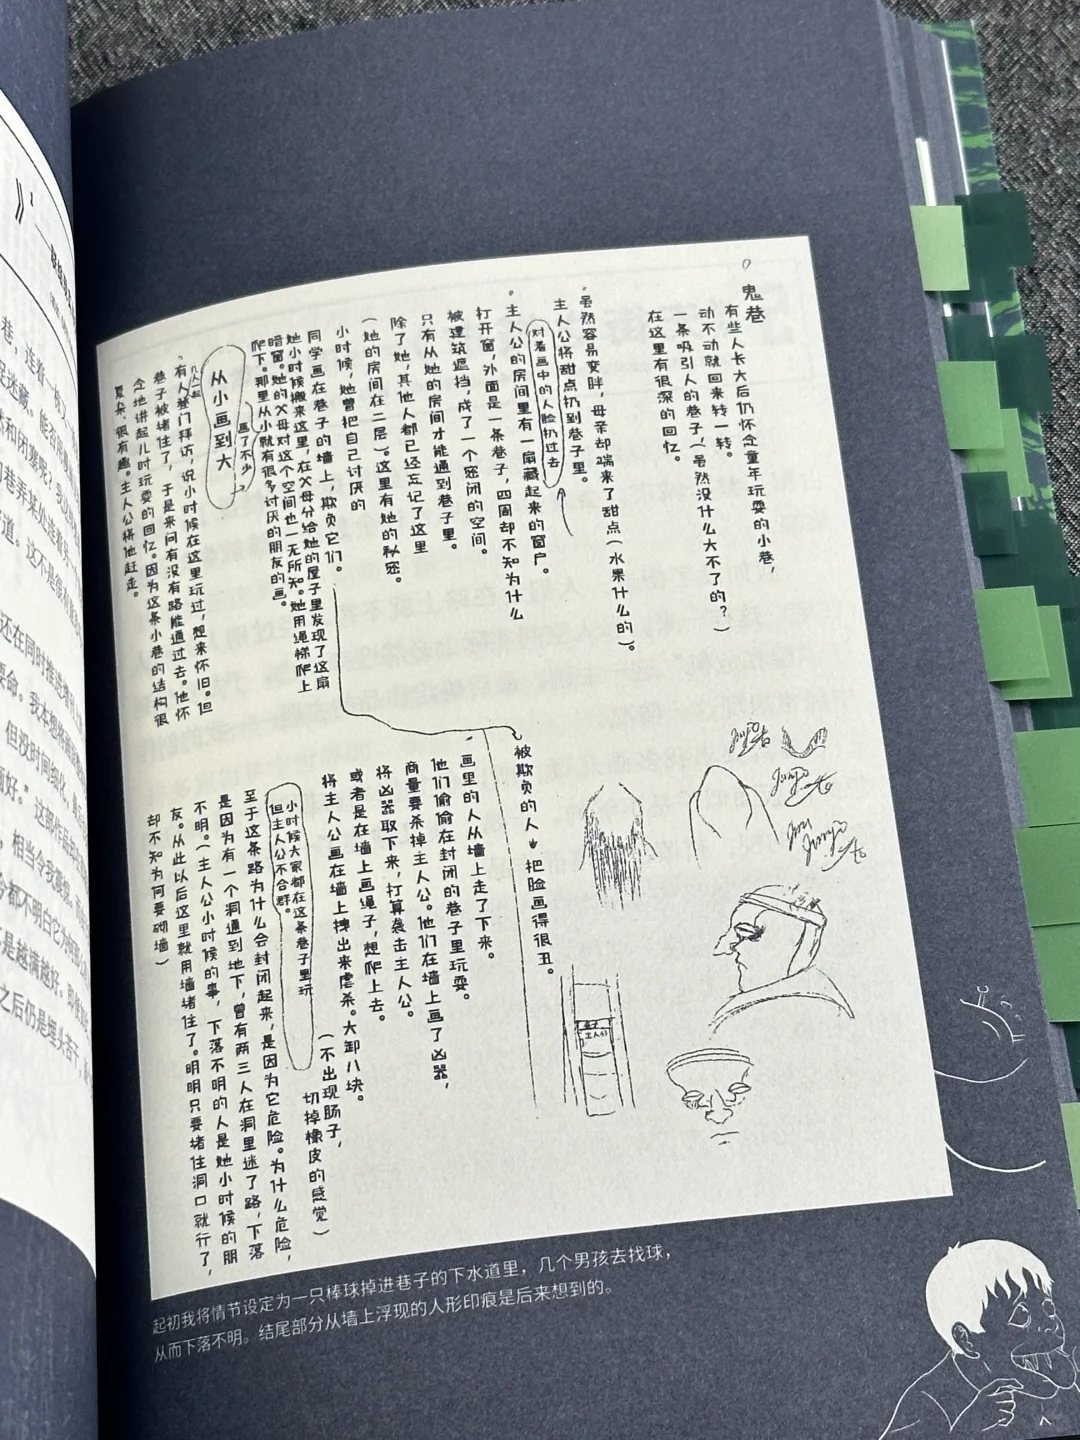 鬼巷
有些人长大后仍怀念童年玩耍的小巷，
动不动就回来转一转。
一条吸引人的巷子（虽然没什么大不了的？）
在这里有很深的回忆。
虽然容易变胖，母亲却端来了甜点（水果什么的）。
主人公将甜点扔到巷子里。
对着画中的人脸扔过去
主人公的房间里有一扇藏起来的窗户。
打开窗，外面是一条巷子，四周却不知为什么
被建筑遮挡，成了一个密闭的空间。
只有从她的房间才能通到巷子里。
除了她，其他人都已经忘记了这里
（她的房间在二层）。这里有她的秘密。
小时候，她曾把自己讨厌的
同学画在巷子的墙上，欺负它们。
她小时候搬来这里，在父母分给她的屋子里发现了这扇
暗窗。她的父母对这个空间也一无所知。她用绳梯爬上
爬下。那里从小就有很多讨厌的朋友的画。
画了不少
从小画到大
几人一起
有人登门拜访，说小时候在这里玩过，想来怀旧。但
巷子被堵住了，于是来问有没有路能通过去。他怀
念地讲起儿时玩耍的回忆。因为这条小巷的结构很
复杂，很有趣。主人公将他赶走。
被欺负的人
把脸画得很丑。
画里的人从墙上走了下来。
他们偷偷在封闭的巷子里玩耍。
商量要杀掉主人公。他们在墙上画了凶器，
将凶器取下来，打算袭击主人公。
或者是在墙上画绳子，想爬上去。
将主人公画在墙上拽出来虐杀。大卸八块。
（不出现肠子，
切掉橡皮的感觉）
小时候大家都在这条巷子里玩
但主人公不合群。
至于这条路为什么会封闭起来，是因为它危险。为什么危险，
是因为有一个洞通到地下，曾有两三人在洞里迷了路，下落
不明。（主人公小时候的事，下落不明的人是她小时候的朋
友。从此以后这里就用墙堵住了。明明只要堵住洞口就行了，
却不知为何要砌墙）
巷子
主人公
起初我将情节设定为一只棒球掉进巷子的下水道里，几个男孩去找球，
从而下落不明。结尾部分从墙上浮现的人形印痕是后来想到的。